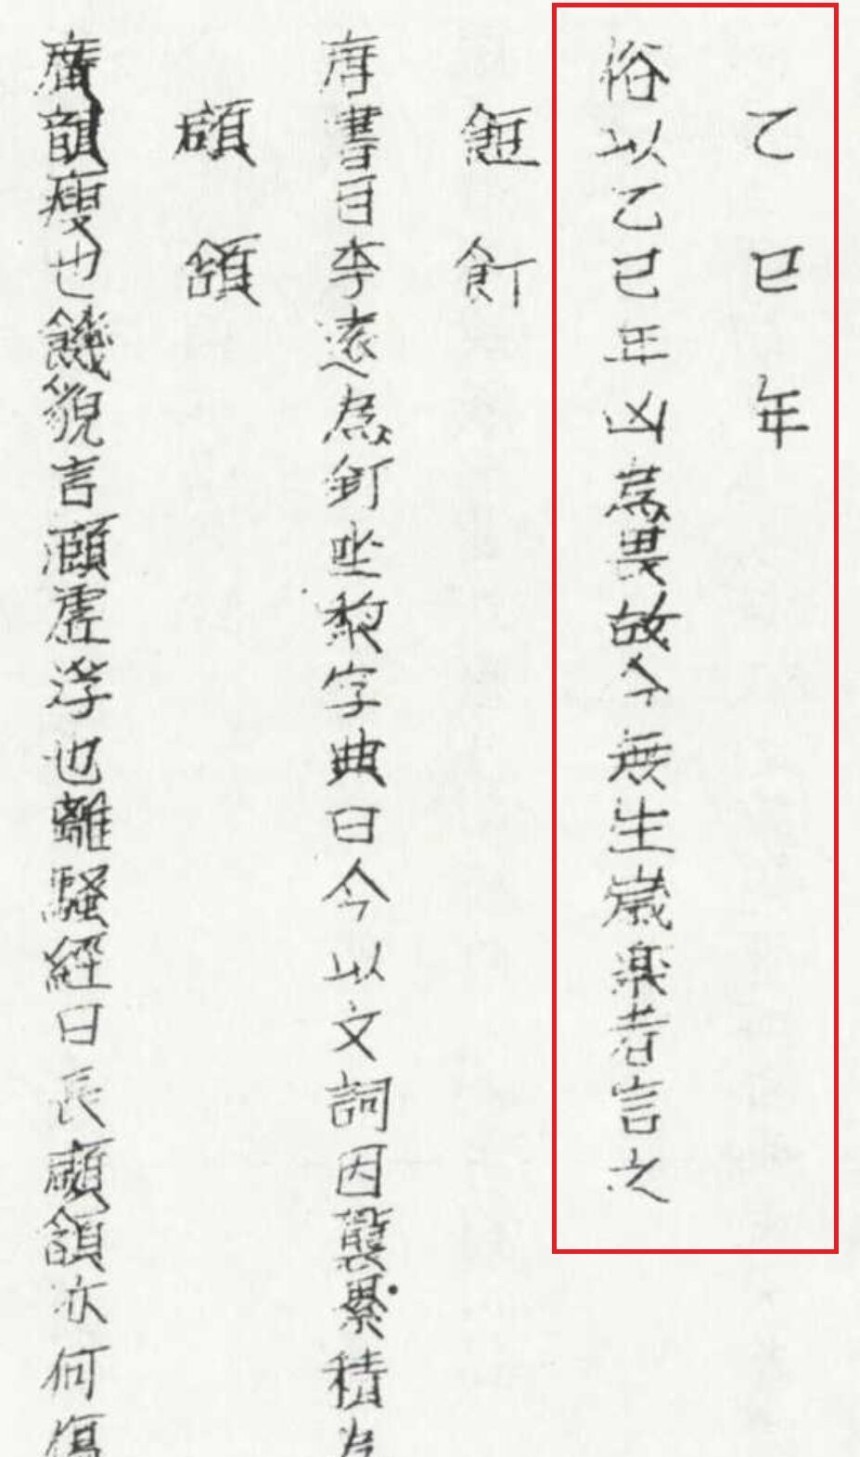 乙巳年
俗以乙巳年凶為畏故今無生歲樂者言之
飣
唐書曰李遠為釘坐黎字典曰今以文詞因襲累積為
頷
廣韻瘦也饑貌言顑虛浮也離騷經曰長顑頷亦何傷